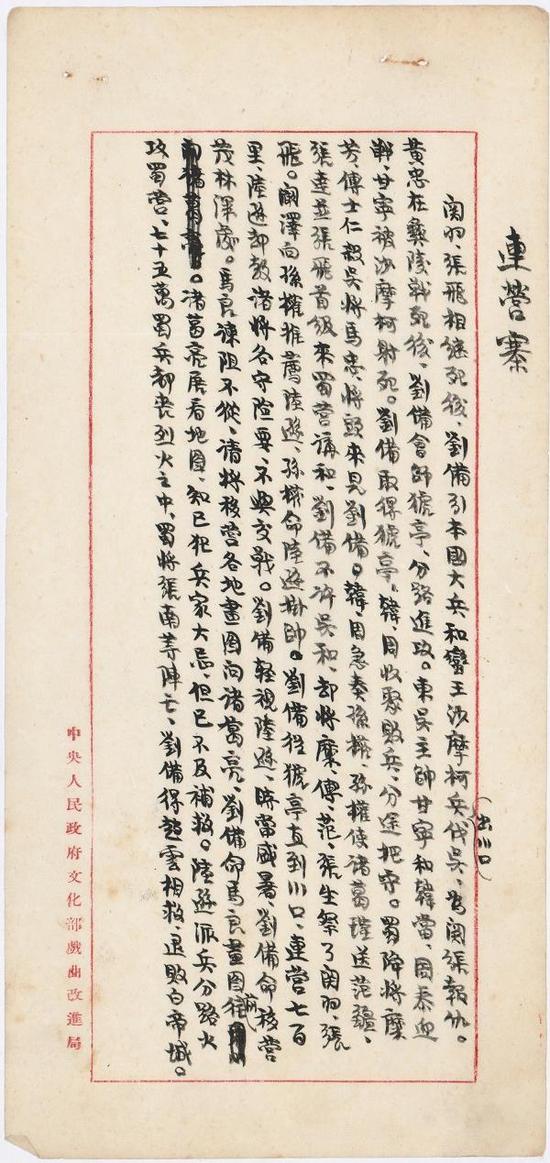 連營寨
関羽、張飛相继死後、劉備引本國大兵和蠻王沙摩柯兵伐吳、為関張報仇。
（出川口）
黃忠在彝陵戰死後、劉備會師猇亭、分路進攻。東吳主帥甘寧和韓當、周泰迎
戰、甘寧被沙摩柯射死。劉備取得猇亭、韓、周收聚敗兵、分途把守。蜀降將糜
芳、傅士仁殺吳將馬忠、將頭來見劉備。韓、周急奏孫權、孫權使諸葛瑾送范疆、
張達並張飛首級來蜀营講和、劉備不許吳和、却將糜、傅、范、張生祭了関羽、張
飛。闞澤向孫權推薦陸遜、孫權命陸遜掛帥。劉備從猇亭直到川口、連营七百
里、陸遜却教諸將各守險要、不與交戰。劉備輕視陸遜、時當盛暑、劉備命移营
茂林深處。馬良諫阻不從、請將移营各地畫图问諸葛亮、劉備命馬良畫图前往
。诸葛亮展看地图、知已犯兵家大忌、但已不及補救。陸遜派兵分路火
攻蜀营、七十五萬蜀兵都丧烈火之中、蜀將張南等陣亡、劉備得趙雲相救、退敗白帝城。
中央人民政府文化部戲曲改進局